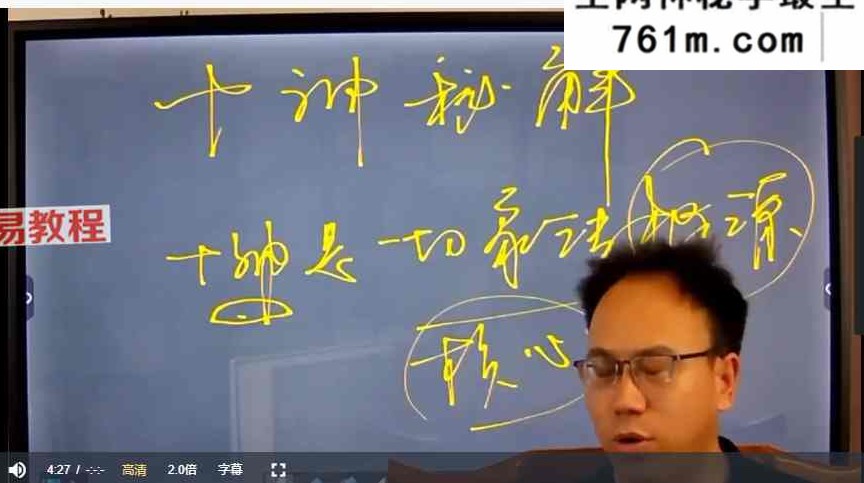 761m.com
十神秘解
易教程
十神是一切象法根源
核心
4:27 / -:-:-
高清
2.0倍
字幕